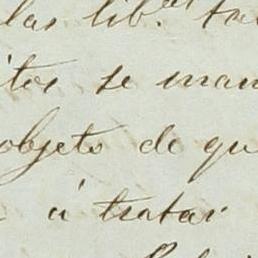 las lib.
itos se man
objeto de qu
á tratar